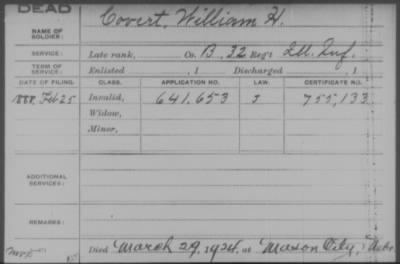 DEAD
NAME OF SOLDIER: Covert, William H.
SERVICE: Late rank, Co. B, 32 Reg't Ill. Inf.
TERM OF SERVICE: Enlisted , 1 Discharged , 1
DATE OF FILING. CLASS. APPLICATION NO. LAW. CERTIFICATE NO.
1888, Feb 25 Invalid, 641,653 J 755,133
Widow,
Minor,
ADDITIONAL SERVICES:
REMARKS:
Died March 29, 1924, at Mason City, Nebr.